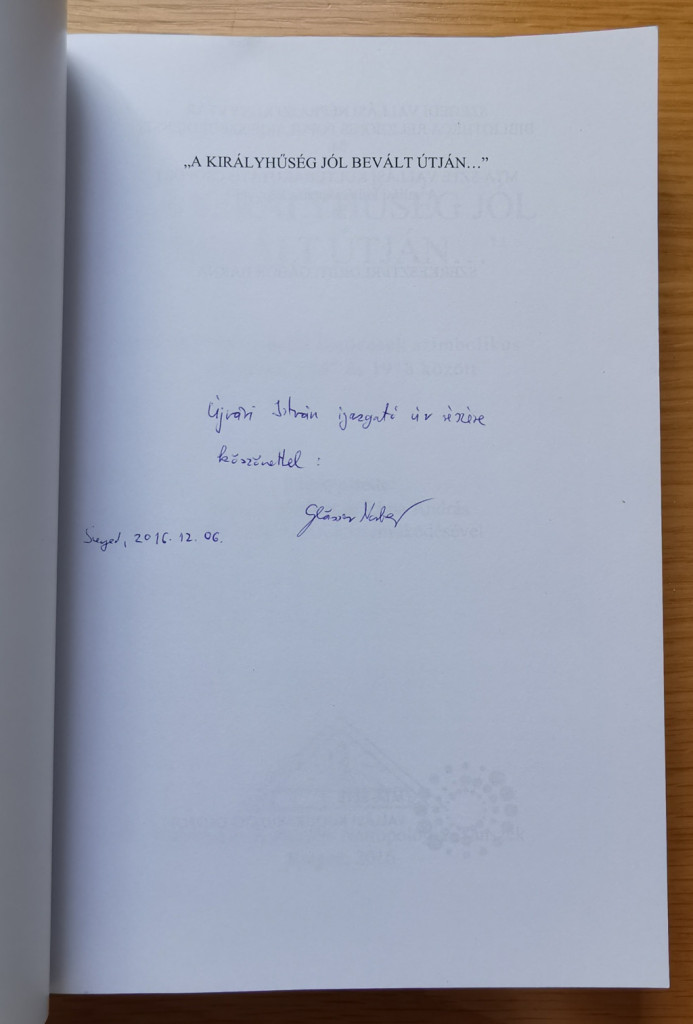 „A KIRÁLYHŰSÉG JÓL BEVÁLT ÚTJÁN…”
Újvári István igazgató úr részére
köszönettel :
Glässer Norbert
Szeged, 2016. 12. 06.